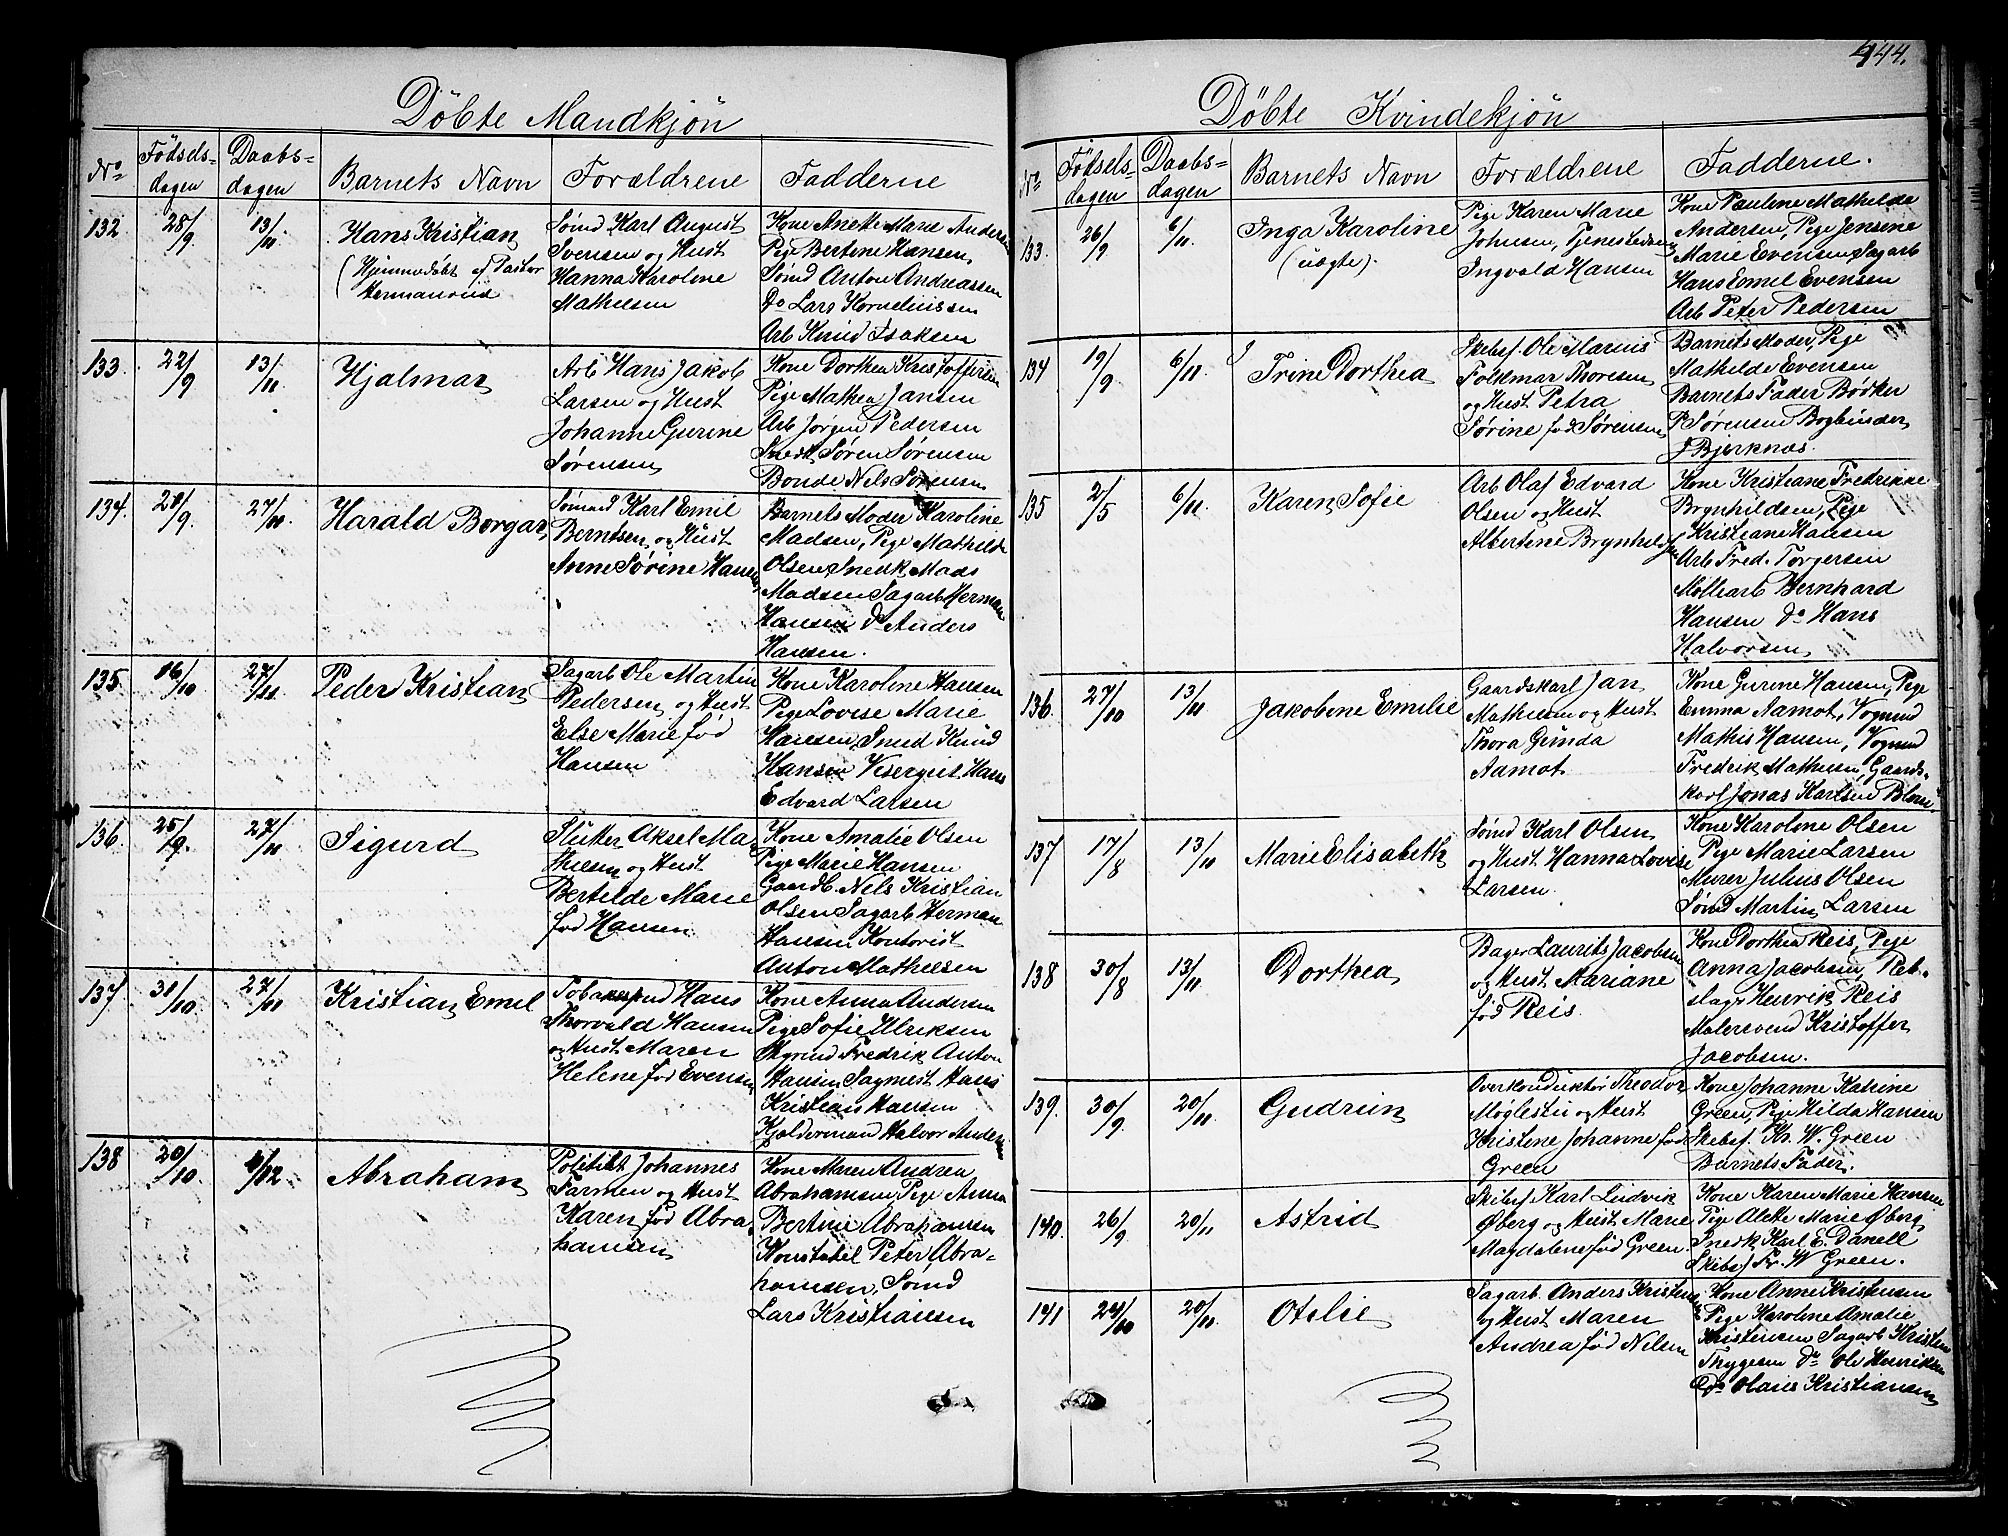 144.
Döbte Mandkjön
No
Födsels-
dagen
Daabs-
dagen
Barnets Navn
Forældrene
Fadderne
132
28/9.
13/11.
Hans Kristian
(Hjemmedöbt af Pastor
Hermanrud
Sömd Karl August
Svensen og Hust
Hanna Karoline
Mathesen
Kone Anette Marie Andersen
Pige Bertine Hansen
Sömd Anton Andreassen
Do Lars Kornelinssen
Arb Knud Isaksen
133.
22/9
13/11.
Hjalmar
Arb Hans Jakob
Larsen og Hust
Johanne Gurine
Sørensen
Kone Dorthea Kristoffersen
Pige Mathea Jansen
Arb Jörgen Pedersen
Snedk Sören Sörensen
Bonde Nils Sörensen
134.
20/9.
27/11.
Harald Borgar
Sömand Karl Emil
Berntsen og Hust
Anne Sörine Hansen
Barnets Moder Karoline
Madsen, Pige Mathilde
Olsen Snedk Mads
Madsen Sagarb Herman
Hansen Do Anders
Hansen.
135
16/10
27/11
Peder Kristian
Sagarb Ole Martin
Pedersen og Hust
Else Marie föd
Hansen
Kone Karoline Hansen
Pige Lovise Marie
Hansen, Smed Knud
Hansen Visergut Hans
Edvard Larsen
136.
25/9.
27/11
Sigurd
Slutter Aksel Ma
thiesen og Hust
Bertilde Marie
föd Hansen
Kone Amalie Olsen
Pige Marie Hansen
Gaardb. Nils Kristian
Olsen Sagarb Herman
Hansen Kontorist
Anton Mathesen
137
31/10.
27/11
Kristian Emil
Hans
Thorvald Hansen
og Hust Maren
Helene föd Evensen
Kone Anna Andersen
Pige Sofie Ulriksen
Fredrik Anton
Hansen Sagmest Hans
Kristian Hansen
Kjelderman Halvor Andersen
138
20/10.
4/12.
Abraham
Politibt Johannes
Farmen og Hust
Karen föd Abra
hamsen
Kone Maren Andrea
Abrahamsen Pige Anna
Bertine Abrahamsen
Konstabel Peter Abra-
hamsen, Sömd
Lars Kristiansen
Döbte Kvindekjön
No
Födsels-
dagen
Daabs-
dagen
Barnets Navn
Forældrene
Fadderne.
133.
26/9
6/11.
Inga Karoline
(uægte).
Pige Karen Marie
Johnsen, Tjenestedreng
Ingvald Hansen
Kone Pauline Mathilde
Andersen, Pige Jensine
Marie Evensen Sagarb
Hans Emil Evensen
Arb Peter Pedersen
134
19/9
6/11.
Trine Dorthea
Skibsf. Ole Marius
Folkmar Thoresen
og Hust Petra
Sörine föd Sörensen
Barnets Moder, Pige
Mathilde Evensen
Barnets Fader Bödker
P. Sörensen Bogbinder
J Bjerknæs.
135
2/5
6/11.
Karen Sofie
Arb Olaf Edvard
Olsen og Hust
Albertine Brynhildsen
Kone Kristiane Fredrikke
Brynhildsen, Pige
Kristiane Hansen
Arb Fred. Torgersen
Möllearb Bernhard
Hansen Do Hans
Halvorsen
136.
27/10
13/11
Jakobine Emilie
Gaardskarl Jan
Mathiesen og Hust
Thora Gunda
Aamot
Kone Gurine Hansen, Pige
Emma Aamot, Vognmd
Mathis Hansen, Vognmd
Fredrik Mathesen, Gaards-
karl Jonas Karlsen Blom
137
17/8
13/11
Marie Elisabeth
Sömd Karl Olsen
og Hust Hanna Lovise
Larsen.
Kone Karoline Olsen
Pige Marie Larsen
Murer Julius Olsen
Sömd Martin Larsen
138
30/8
13/11
Dorthea
Bager Laurits Jacobsen
og Hust Mariane
föd Reis.
Kone Dorthea Reis, Pige
Anna Jacobsen, Reb-
slagr Henrik Reis
Malersvend Kristoffer
Jacobsen.
139.
30/9.
20/11
Gudrun
Overkonduktör Theodor
Möglestu og Hust
Kristine Johanne föd
Green
Kone Johanne Katrine
Green, Pige Hilda Hansen
Skibsf. Kr. W. Green
Barnets Fader.
140.
26/9
20/11
Astrid
Skibsf Karl Ludvik
Øberg og Hust Marie
Magdalene föd Green.
Kone Karen Marie Hansen
Pige Alette Marie Øberg
Snedk Karl E. Danell
Skibsf Fr. W Green.
141
24/10
20/11
Otelie
Sagarb Anders Kristensen
og Hust Maren
Andrea föd Nilsen
Kone Anne Kristensen
Pige Karoline Amalie
Kristensen Sagarb Kristen
Thygesen Do Ole Henriksen
Do Olaus Kristiansen